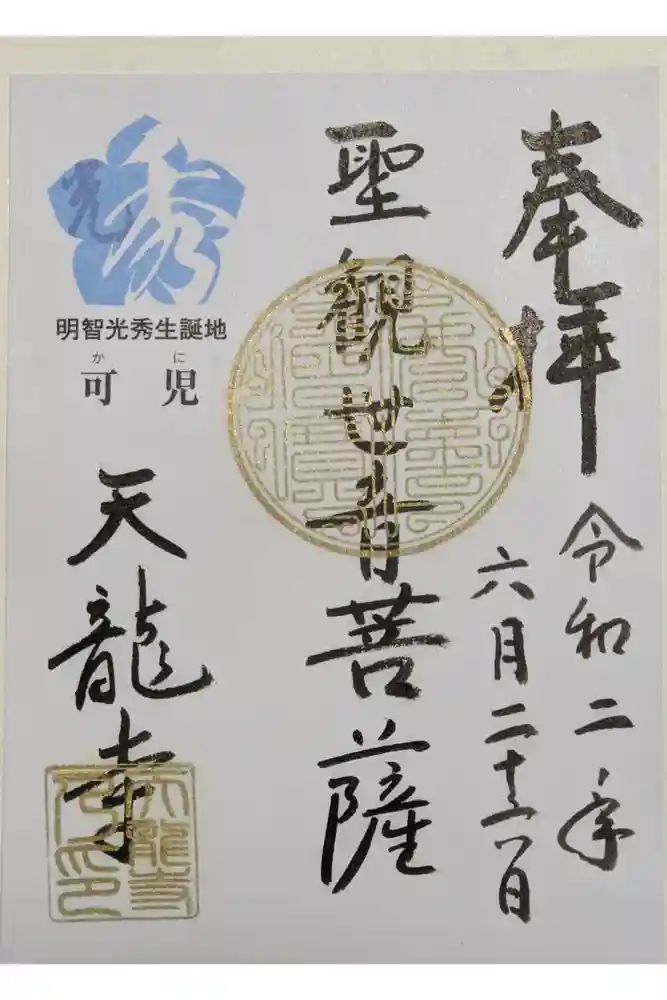 奉拝
令和二年
六月二十六日
聖観世音菩薩
秀
光
明智光秀生誕地
かに
可児
天龍寺